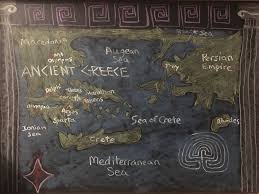 Black Sea
Macedonia
Aegean
Sea
Persian
Empire
Mt
Olympus
Troy
ANCIENT GREECE
Delphi
Thebes
Marathon
Athens
Olympia
Argos
Sparta
Ionian
Sea
Sea of Crete
Rhodes
Crete
Mediterranean
Sea